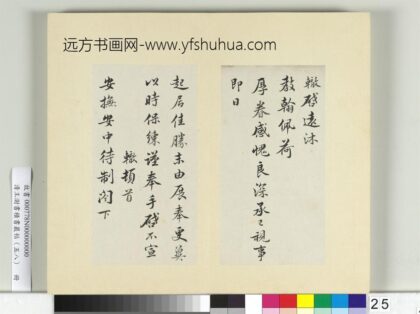 远方书画网-www.yfshuhua.com
轍啓遠沐
教翰佩荷
厚眷感愧良深承已視事
即日
起居佳勝未由展奉更冀
以時保練謹奉手啓不宣
轍頓首
安撫安中待制閤下
25